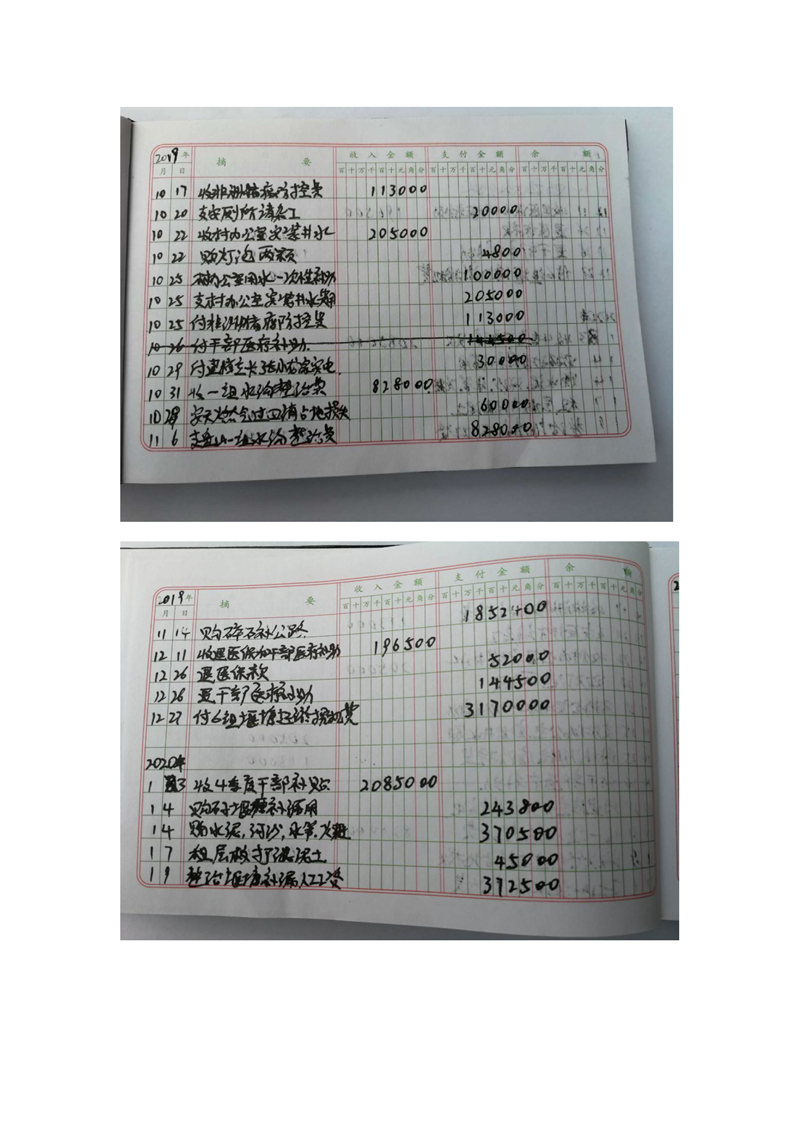 2019年 摘 要 收入金额 支付金额 余 额
月 日 百十万千百十元角分 百十万千百十元角分 百十万千百十元角分
10 17 收非洲猪瘟防控费 113000
10 20 支安厕所请兵工 20000
10 22 收村办公室安装井水 205000
10 22 购灯泡两颗 4800
10 25 办公室用水一次性补助 100000
10 25 支村办公室安装井水费用 205000
10 25 付非洲猪瘟防控费 113000
10 26 付干部医疗补助 144500
10 29 付 30000
10 31 收一组水沟整治费 828000
10 28 天燃气过四组占地损失 60000
11 6 支 一组水沟整治费 828000
2019年 摘 要 收入金额 支付金额 余 额
月 日 百十万千百十元角分 百十万千百十元角分 百十万千百十元角分
11 14 购碎石补公路 1852400
12 11 收退医保加干部医疗补助 196500
12 26 退医保款 52000
12 26 干部医疗补助 144500
12 27 付6组堰塘 挖机费 3170000
2020年
1 3 收4季度干部补贴 2085000
1 4 购 堰塘补漏用 243800
1 4 购水泥,河沙,水管, 370500
1 7 租 混泥土 45000
1 9 整治堰塘补漏人工工资 372500